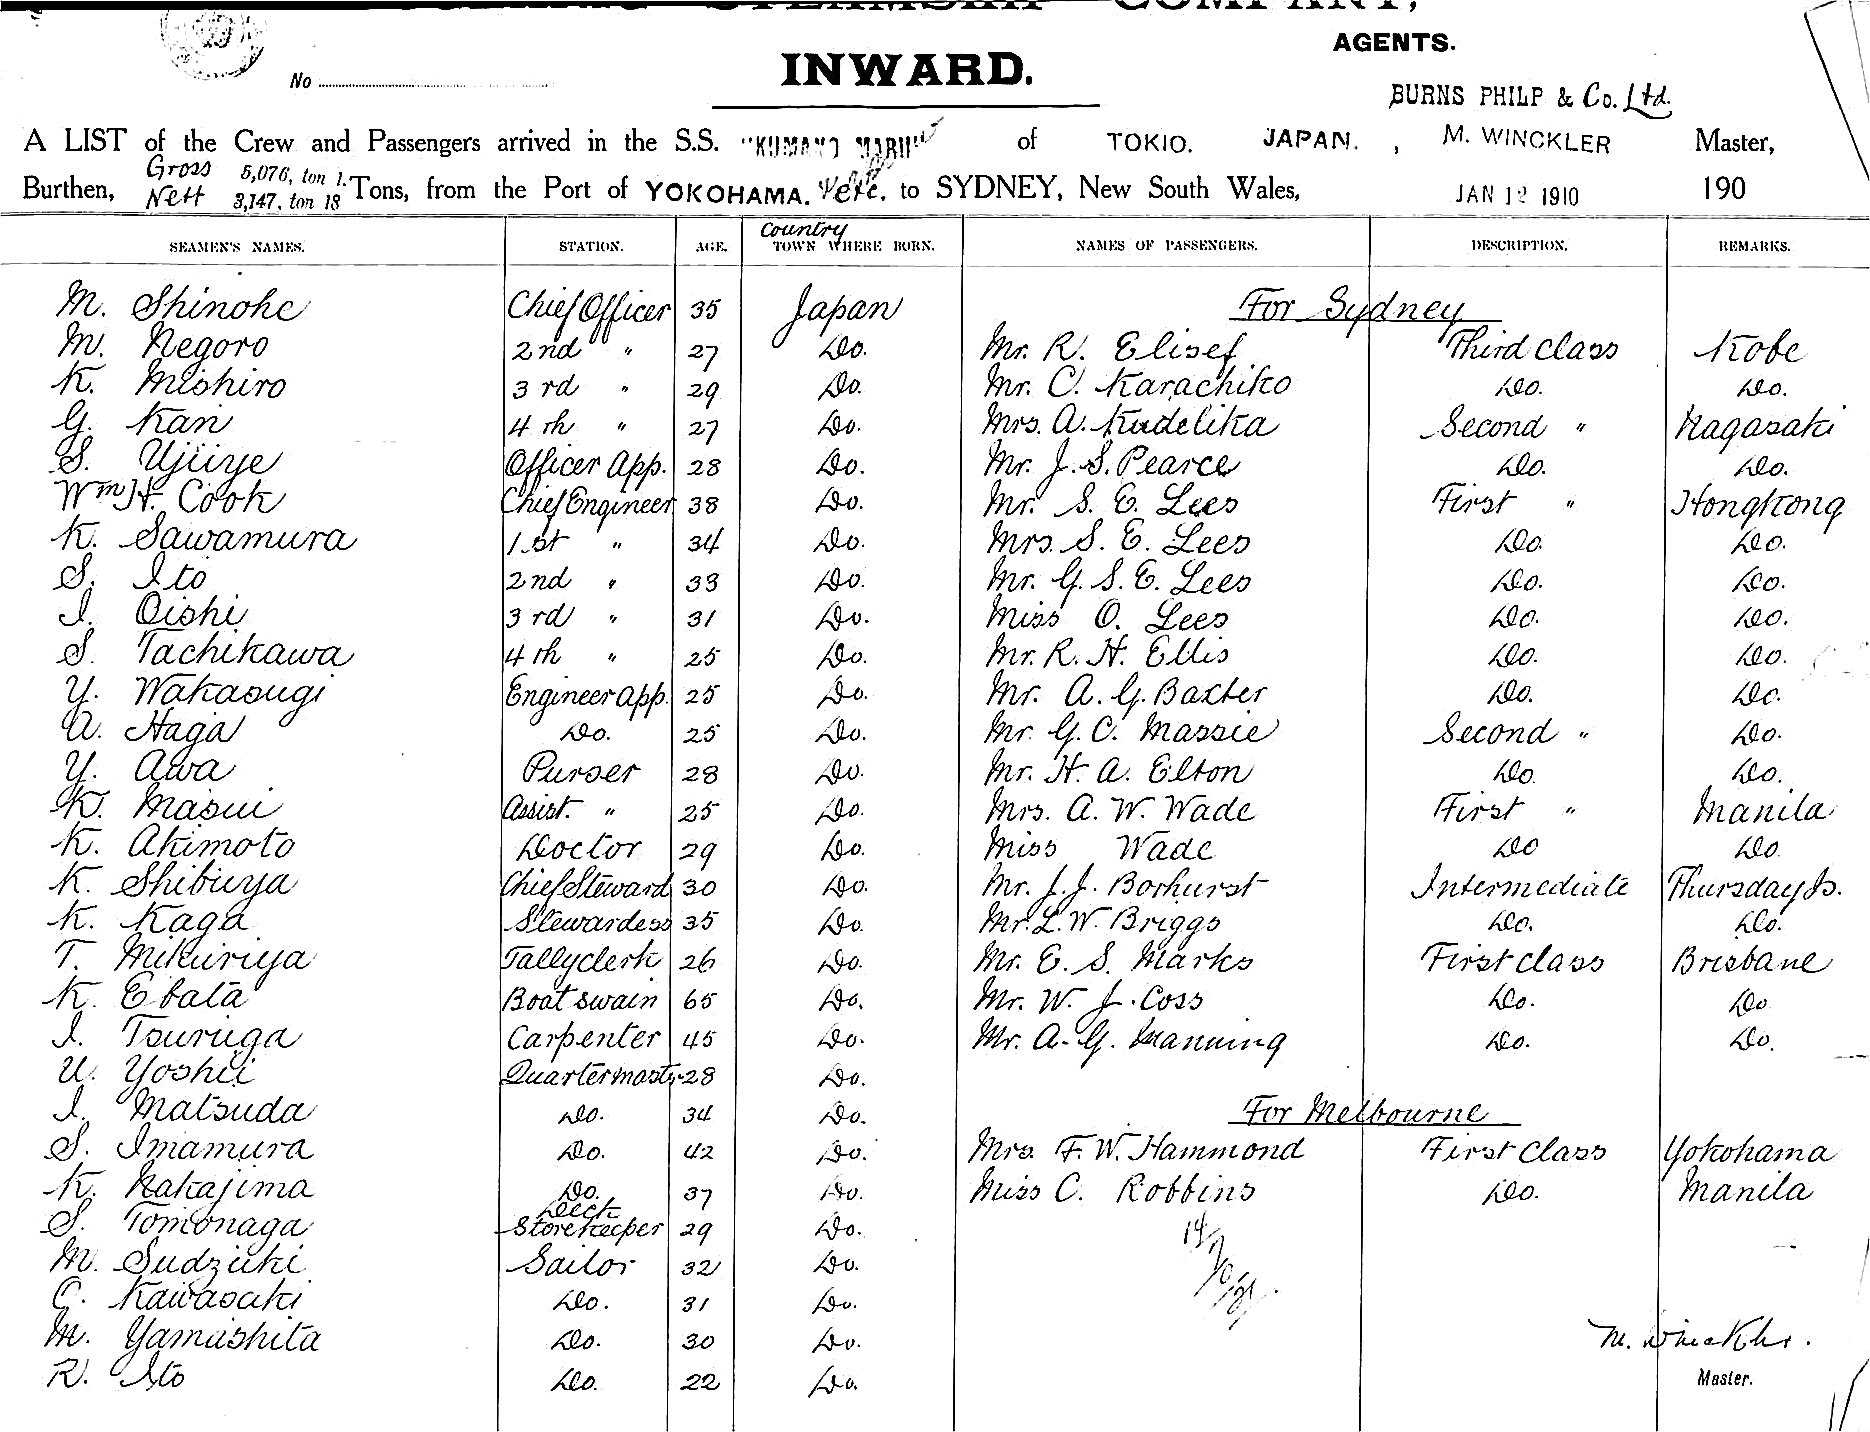 COMPANY,
AGENTS.
No
INWARD.
BURNS PHILP & Co. Ltd.
A LIST of the Crew and Passengers arrived in the S.S. "KUMANO MARU" of TOKIO. JAPAN. , M. WINCKLER Master,
Burthen, Gross 5,076, ton 1. Nett 3,147, ton 18 Tons, from the Port of YOKOHAMA. to SYDNEY, New South Wales, JAN 12 1910 190
SEAMEN'S NAMES. STATION. AGE. Country TOWN WHERE BORN. NAMES OF PASSENGERS. DESCRIPTION. REMARKS.
M. Shinohe Chief Officer 35 Japan For Sydney
M. Negoro 2nd " 27 Do. Mr. R. Elisef Third class Kobe
K. Mishiro 3rd " 29 Do. Mr. C. Karachiko Do. Do.
G. Kan 4th " 27 Do. Mrs. A. Kudelika Second " Nagasaki
S. Ujiiye Officer App. 28 Do. Mr. J. S. Pearce Do. Do.
Wm H. Cook Chief Engineer 38 Do. Mr. S. E. Lees First " HongKong
K. Sawamura 1st " 34 Do. Mrs. S. E. Lees Do. Do.
S. Ito 2nd " 33 Do. Mr. G. S. E. Lees Do. Do.
I. Oishi 3rd " 31 Do. Miss O. Lees Do. Do.
S. Tachikawa 4th " 25 Do. Mr. R. H. Ellis Do. Do.
Y. Wakasugi Engineer app. 25 Do. Mr. A. G. Baxter Do. Do.
U. Haga Do. 25 Do. Mr. G. C. Massie Second " Do.
Y. Awa Purser 28 Do. Mr. H. A. Elton Do. Do.
K. Masui Assist. " 25 Do. Mrs. A. W. Wade First " Manila
K. Akimoto Doctor 29 Do. Miss Wade Do Do.
K. Shibuya Chief Steward 30 Do. Mr. J. J. Borhurst Intermediate Thursday Is.
K. Kaga Stewardess 35 Do. Mr. L. W. Briggs Do. Do.
T. Mikuriya Tallyclerk 26 Do. Mr. E. S. Marks First class Brisbane
K. Ebata Boatswain 65 Do. Mr. W. J. Coss Do. Do
I. Tsuruga Carpenter 45 Do. Mr. A. G. Manning Do. Do.
U. Yoshii Quartermastr 28 Do.
I. Matsuda Do. 34 Do. For Melbourne
S. Imamura Do. 42 Do. Mrs. F. W. Hammond First Class Yokohama
K. Nakajima Do. 37 Do. Miss C. Robbins Do. Manila
S. Tomonaga Deck Storekeeper 29 Do.
M. Sudzuki Sailor 32 Do.
C. Kawasaki Do. 31 Do.
M. Yamashita Do. 30 Do. M. Winckler.
R. Ito Do. 22 Do. Master.